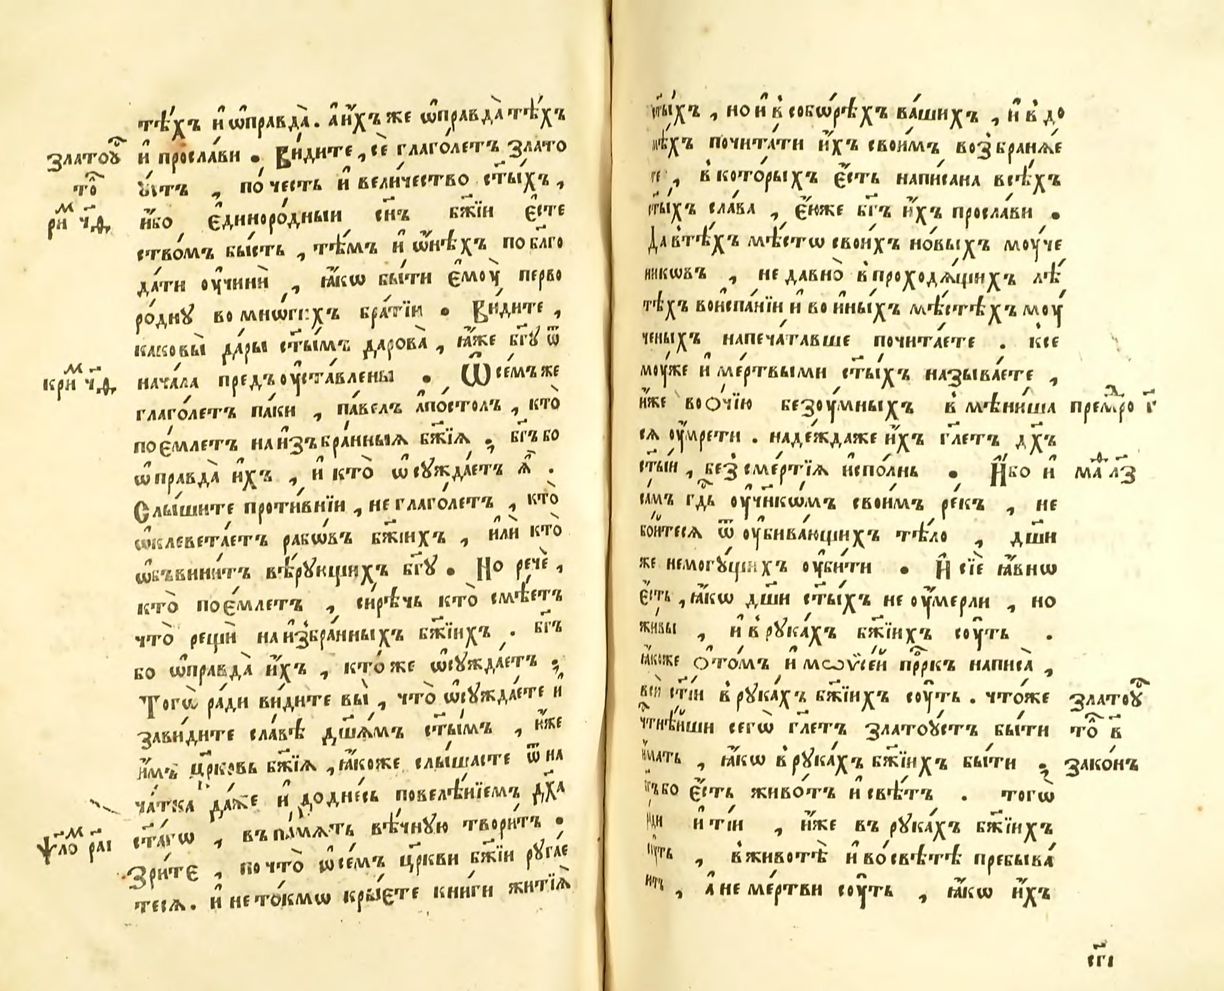 тѣ́хъ и҆ ѡ҆правда̀. а҆ и҆́хъ же ѡ҆правда̀ тѣ́хъ
златоꙋ҆ и҆ просла́ви . Ви́дите, сѐ глаго́летъ злато
то̑ оу҆́стъ , по́ честь и҆ вели́чество ст҃ы́хъ ,
ри҇ м ч҃д и҆́бо є҆диноро́дныи сн҃ъ бж҃їи є҆сте
ство́мъ бы́сть , тѣ́мъ и҆ ѡ҆нѣ́хъ по бл҃го
да́ти оу҆чинѝ , ꙗ҆́кѡ бы́ти є҆моу̀ перво
ро́дну во мно́гихъ бра́тїи . Ви́дите ,
каковы̀ да́ры ст҃ы́мъ дарова̀ , ꙗ҆́же бг҃у ѿ
кри м ч҃д нача́ла предъоу҆ста́влены . Ѿ се́мъ же
глаго́летъ па́ки , па́велъ а҆по́столъ , кто̀
поє҆́млетъ на и҆зъбра́нныѧ бж҃їѧ . бг҃ъ бо
ѡ҆правда̀ и҆́хъ , и҆ кто̀ ѡ҆сужда́етъ ѧ҆̀ .
Слы́шите проти́внїи , не глаго́летъ , кто̀
ѡ҆клевета́етъ рабѡ́въ бж҃їихъ , и҆лѝ кто̀
ѡ҆бъвини́тъ вѣ́рующихъ бг҃у . Но речѐ ,
кто̀ поє҆́млетъ , си́рѣчь кто̀ смѣ́етъ
что̀ рещѝ на и҆збра́нныхъ бж҃їихъ . бг҃ъ
бо ѡ҆правда̀ и҆́хъ , кто́ же ѡ҆сужда́етъ ;
Тогѡ̀ ра́ди ви́дите вы̀ , что̀ ѡ҆сужда́ете и҆
зави́дите сла́вѣ дш҃а́мъ ст҃ы́мъ , и҆́же
и҆́мъ цр҃ковь бж҃їѧ , ꙗ҆́коже слы́шасте ѿ на
ча́тка да́же и҆ до дне́сь повелѣ́нїемъ дх҃а
ѱ м ло ра҃і ст҃а́гѡ , въ па́мѧть вѣ́чную твори́тъ .
Зри́те , по что̀ ѡ҆ се́мъ цр҃кви бж҃їи руга́е
тесѧ . и҆ не то́кмѡ кры́ете кни́ги житїѧ̀
ст҃ы́хъ , но и҆ в̾ собѡ́рѣхъ ва́шихъ , и҆ в̾ до
мѣ́хъ почита́ти и҆́хъ свои́мъ возбранѧ́е
те , в̾ кото́рыхъ є҆́сть напи́сана всѣ́хъ
ст҃ы́хъ сла́ва , є҆́юже бг҃ъ и҆́хъ просла́ви .
Да в̾ тѣ́хъ мѣ́стѡ свои́хъ но́выхъ моу́че
никѡвъ , не давно̀ в̾ проходѧ́щихъ лѣ́
тѣхъ во и҆спа́нїи и҆ во и҆ны́хъ мѣ́стѣхъ моу́
ченыхъ напеча́тавше почита́ете . к се
моу́же и҆ ме́ртвыми ст҃ы́хъ называ́ете ,
и҆́же во ѻ҆́чїю безоу́мныхъ в̾мѣни́ша прем҃ро г҃
сѧ оу҆мре́ти . наде́жда же и҆́хъ гл҃етъ дх҃ъ
ст҃ы́и , безсме́ртїѧ и҆спо́лнь . И҆́бо и҆ ма ѳ л҃з
са́мъ гд҃ь оу҆чн҃ко́мъ свои́мъ ре́къ , не
бо́йтесѧ ѿ оу҆бива́ющихъ тѣ́ло , дш҃и
же немогу́щихъ оу҆би́ти . И҆ сїѐ ꙗ҆́внѡ
є҆́сть , ꙗ҆́кѡ дш҃и ст҃ы́хъ не оу҆́мерли , но
жи́вы , и҆ в̾ рука́хъ бж҃їихъ соу́ть .
ꙗ҆́коже ѻ҆ то́мъ и҆ мѡѷсе́й прⷪ҇ркъ написа̀ ,
всѝ ст҃і́и в̾ рука́хъ бж҃їихъ соу́ть . что́же златоꙋ҆
ч҃тнѣ́йши сегѡ̀ гл҃етъ златоу́стъ бы́ти то̑ в҃
и҆́мать , ꙗ҆́кѡ в̾ рука́хъ бж҃їихъ бы́ти . зако́нъ
бг҃ъ бо є҆́сть живо́тъ и҆ свѣ́тъ . тогѡ̀
ра́ди и҆ ті́и , и҆́же въ рука́хъ бж҃їихъ
соу́ть , в̾ животѣ̀ и҆ во свѣ́тѣ пребыва́
ютъ , а҆ не ме́ртви соу́ть , ꙗ҆́кѡ и҆́хъ
є҃гі